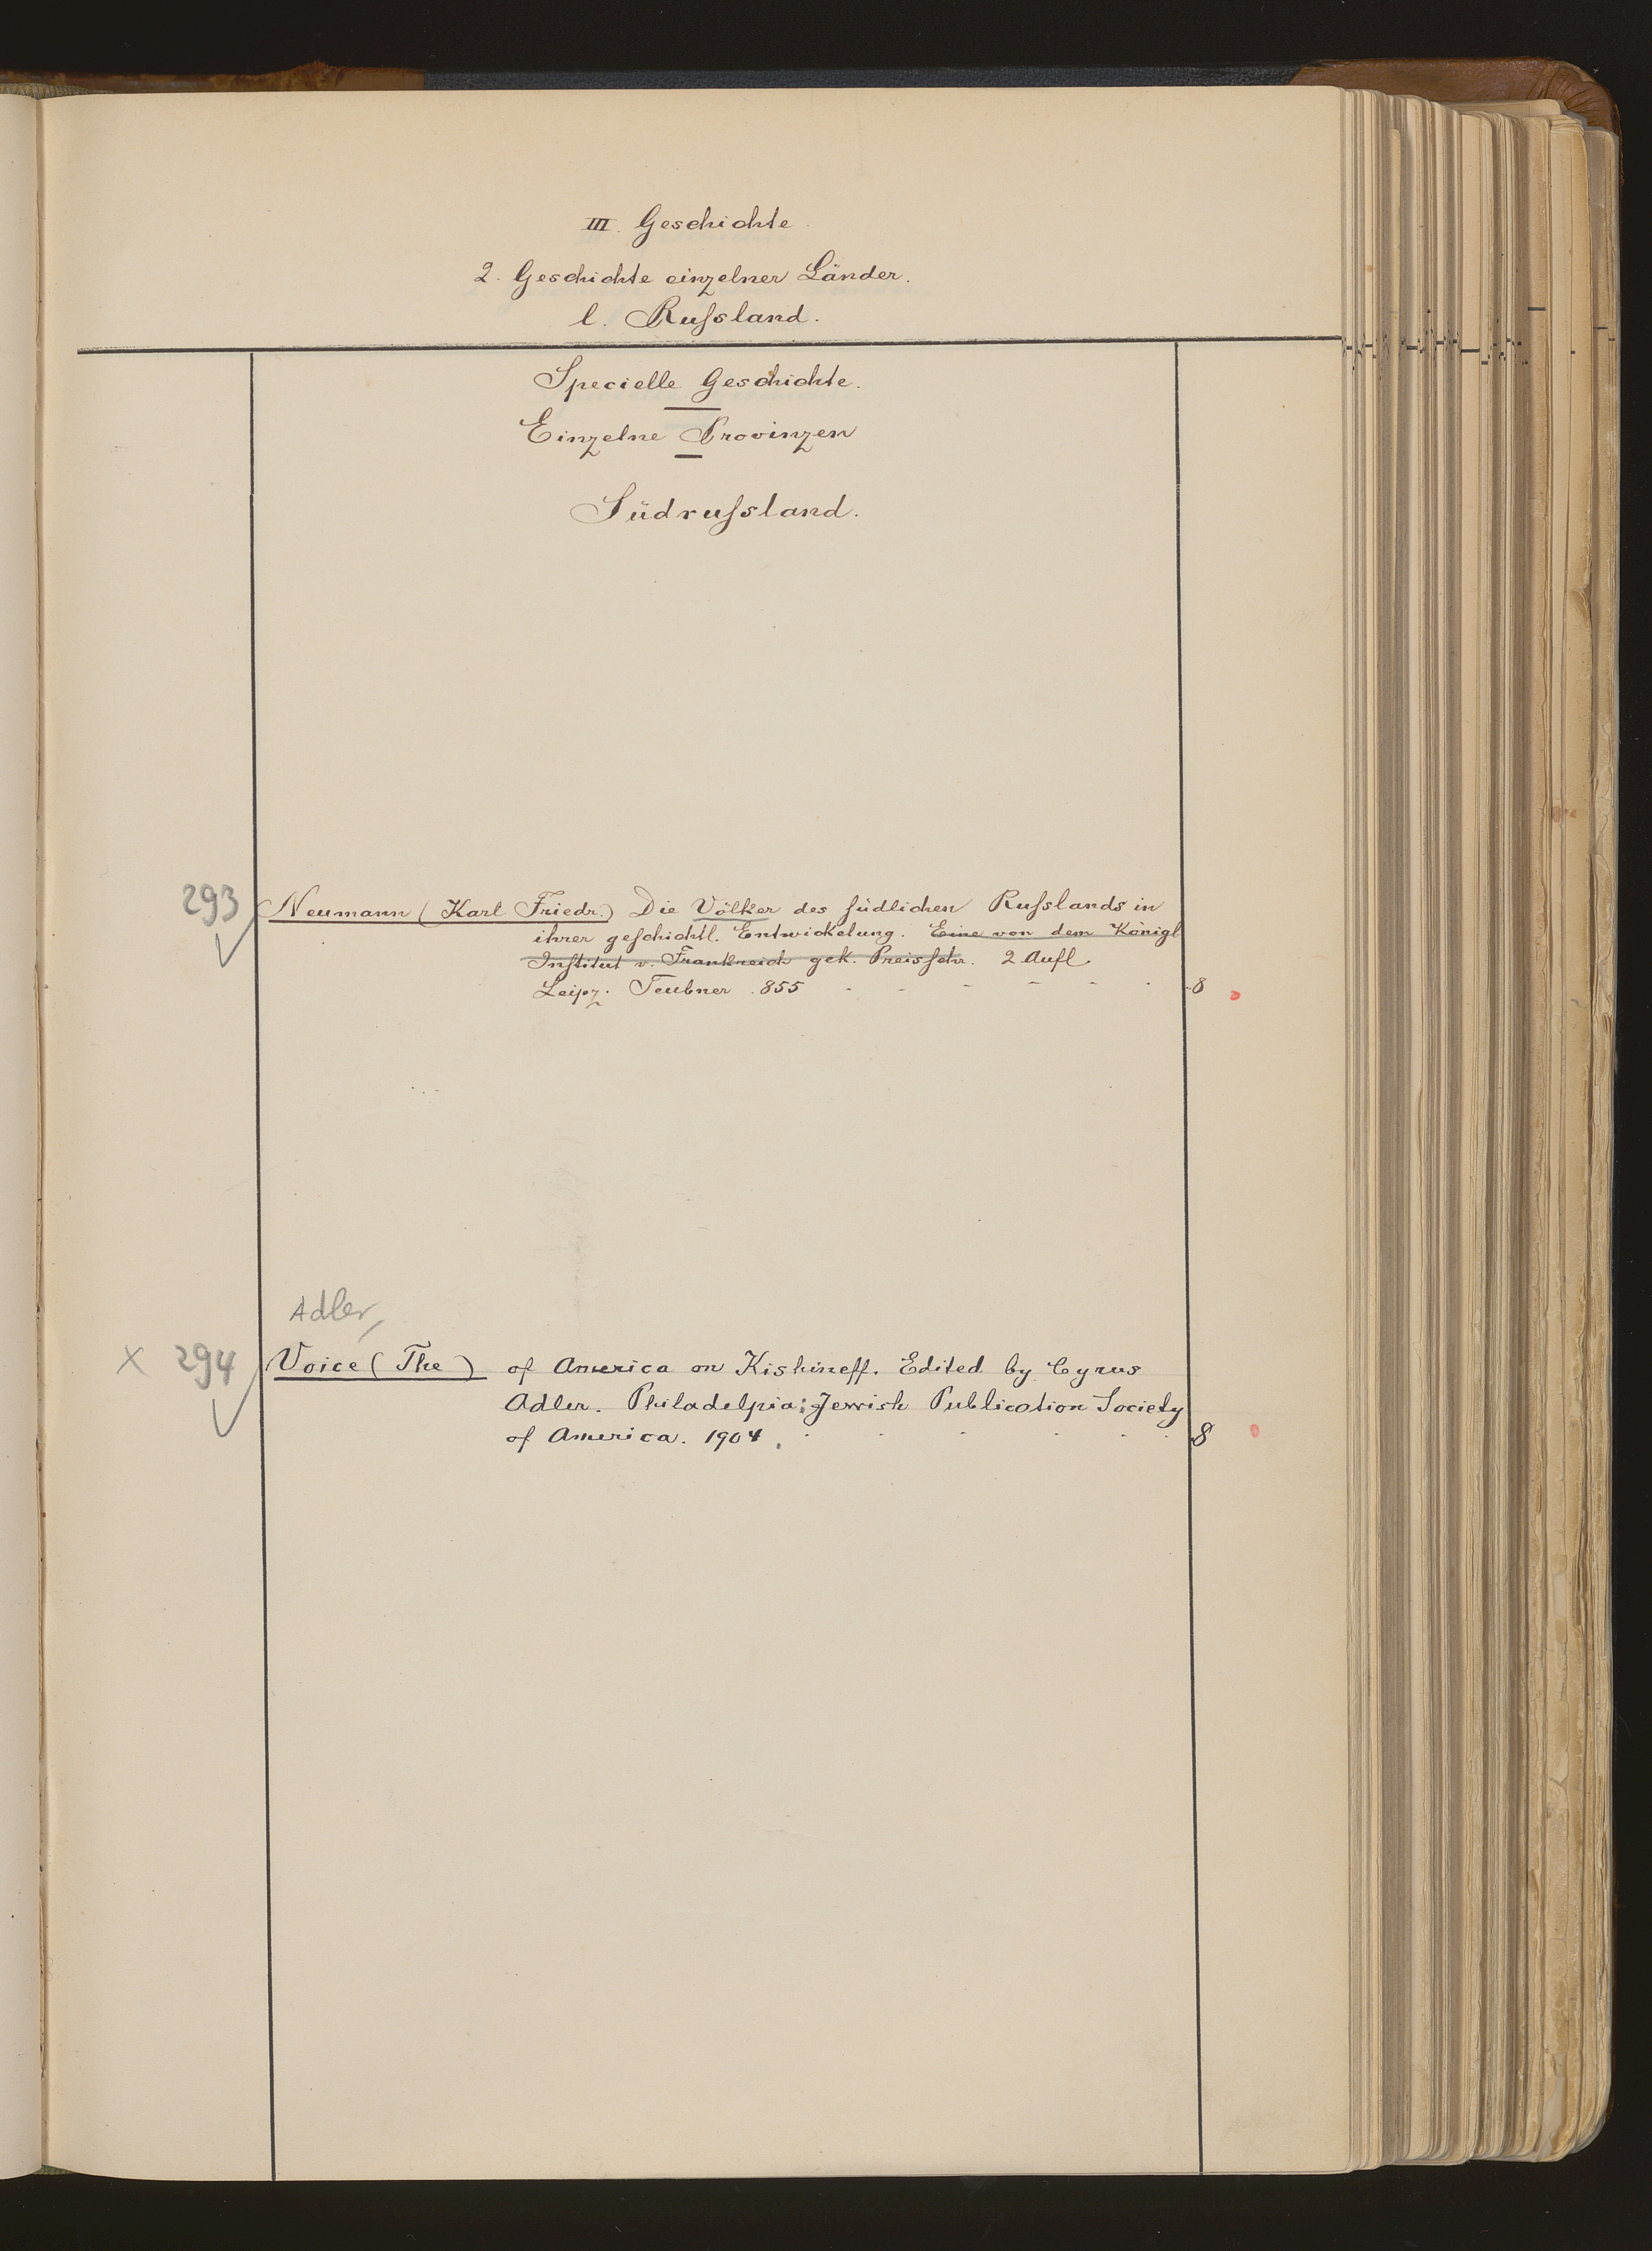 III. Geschichte
2. Geschichte einzelner Länder.
l. Rußland.
Specielle Geschichte.
Einzelne Provinzen
Südrußland.
293 Neumann (Karl Friedr.) Die Völker des südlichen Rußlands in
ihrer geschichtl. Entwickelung. Eine von dem Königl
Institut v. Frankreich gek. Preisschr. 2 Aufl.
Leipz. Teubner .855 - - - - - - 8
Adler,
x 294 Voice (The) of America on Kishineff. Edited by Cyrus
Adler. Philadelpia: Jewish Publication Society
of America. 1904. . . . . . . 8